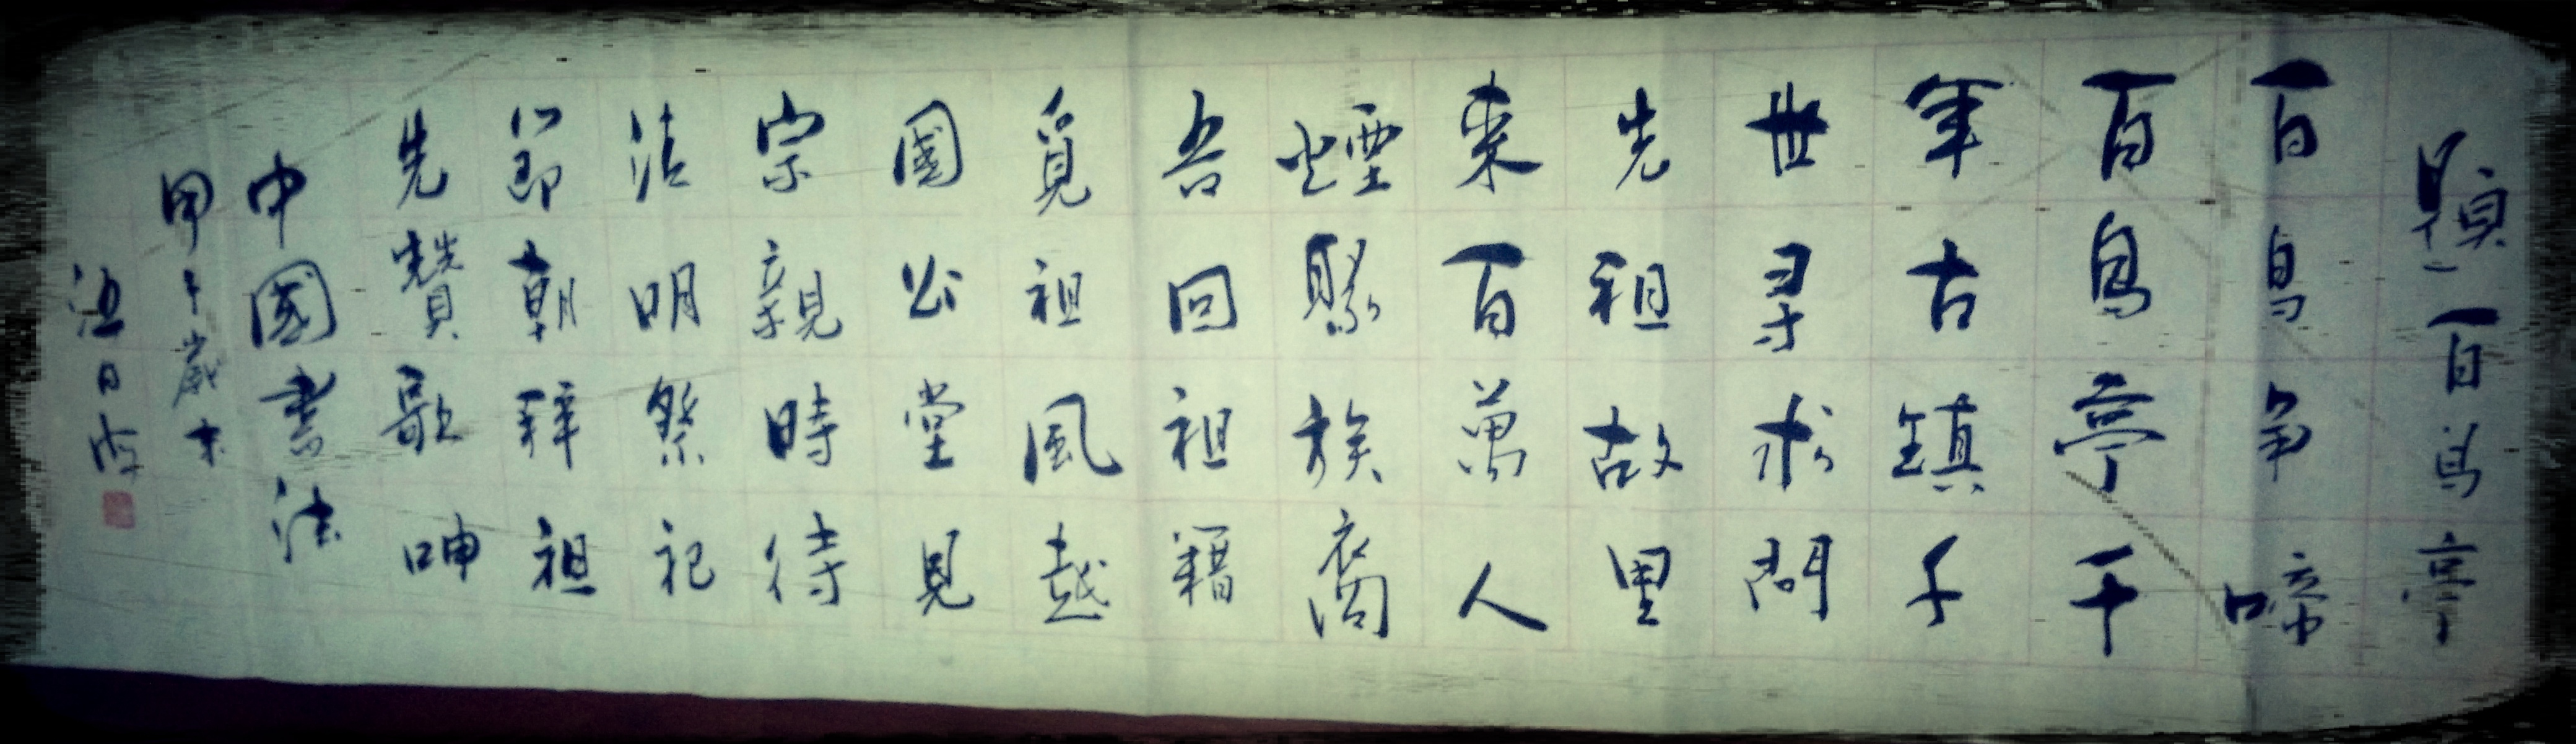 題百鳥亭
百鳥爭啼
百鳥亭千
年古鎮千
世尋求問
先祖故里
來百萬人
煙聚族裔
吾回祖籍
覓祖風越
國公堂見
宗親時待
清明祭祀
節朝拜祖
先贊歌呻
中國書法
甲午歲末
汪日